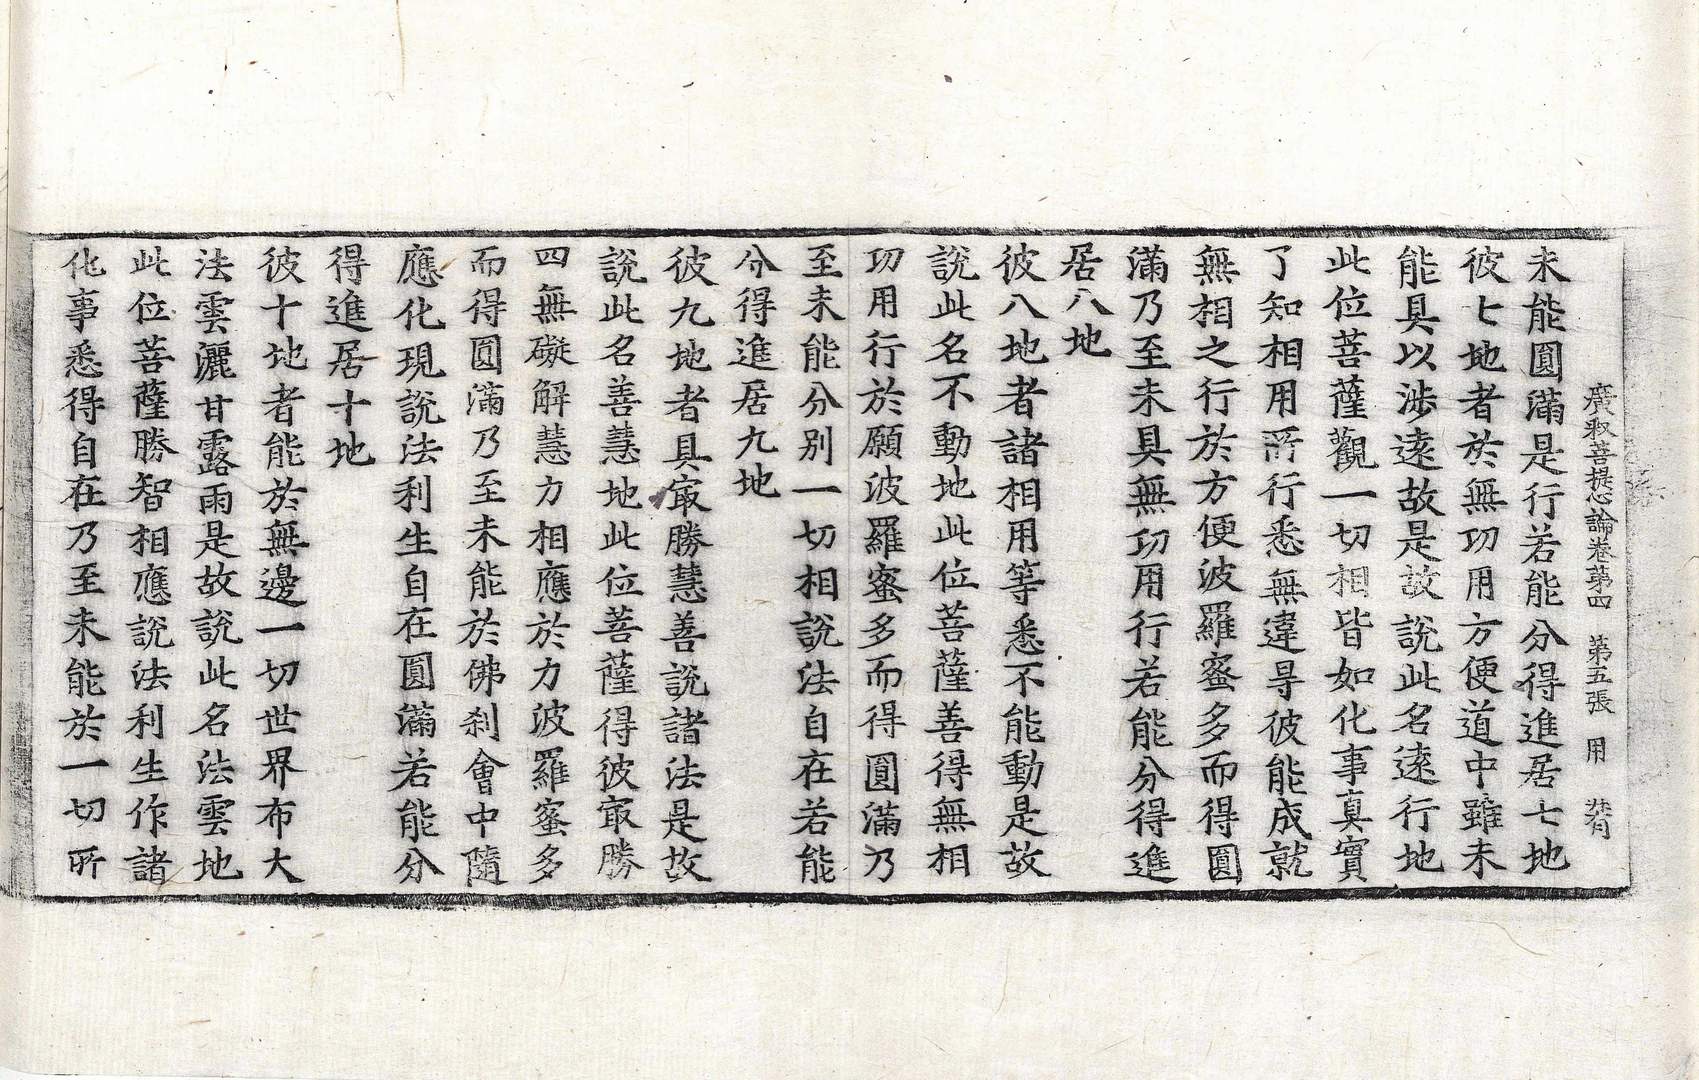 廣釈菩提心論卷第四　第五張　用
未能圓滿是行若能分得進居七地
彼七地者於無功用方便道中雖未
能具以涉遠故是故說此名遠行地
此位菩薩觀一切相皆如化事真實
了知相用所行悉無違㝵彼能成就
無相之行於方便波羅蜜多而得圓
滿乃至未具無功用行若能分得進
居八地
彼八地者諸相用等悉不能動是故
說此名不動地此位菩薩善得無相
功用行於願波羅蜜多而得圓滿乃
至未能分別一切相說法自在若能
分得進居九地
彼九地者具㝡勝慧善說諸法是故
說此名善慧地此位菩薩得彼㝡勝
四無礙解慧力相應於力波羅蜜多
而得圓滿乃至未能於佛剎會中隨
應化現說法利生自在圓滿若能分
得進居十地
彼十地者能於無邊一切世界布大
法雲灑甘露雨是故說此名法雲地
此位菩薩勝智相應說法利生作諸
化事悉得自在乃至未能於一切所